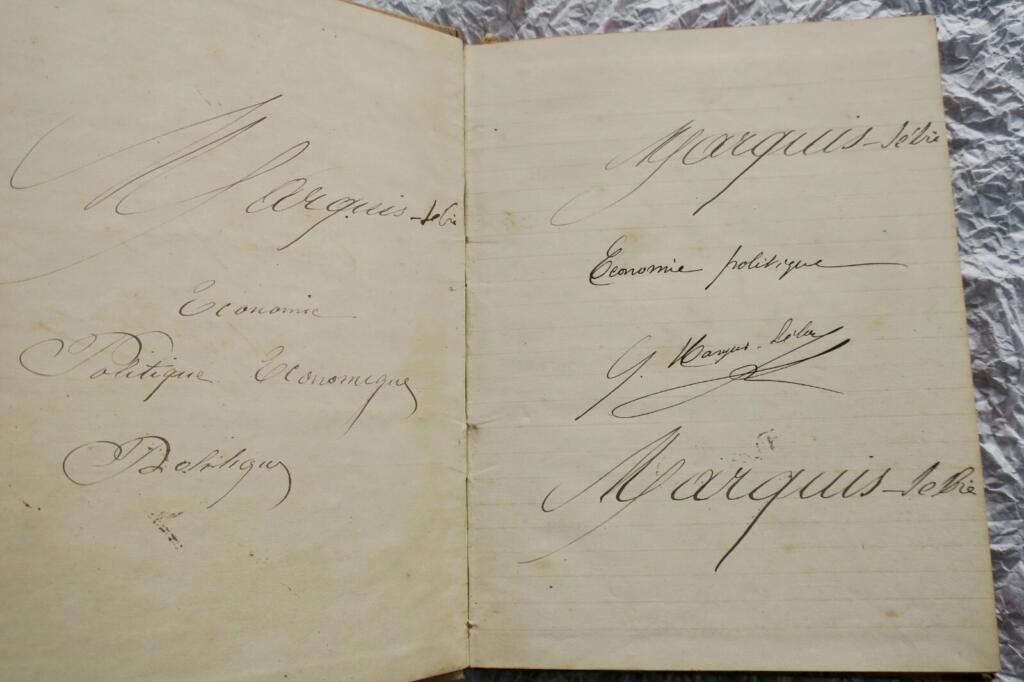 Marquis-Sébie
Economie
Politique Economique
Politique
Marquis-Sébie
Economie politique
G. Marquis-
Marquis-Sebie